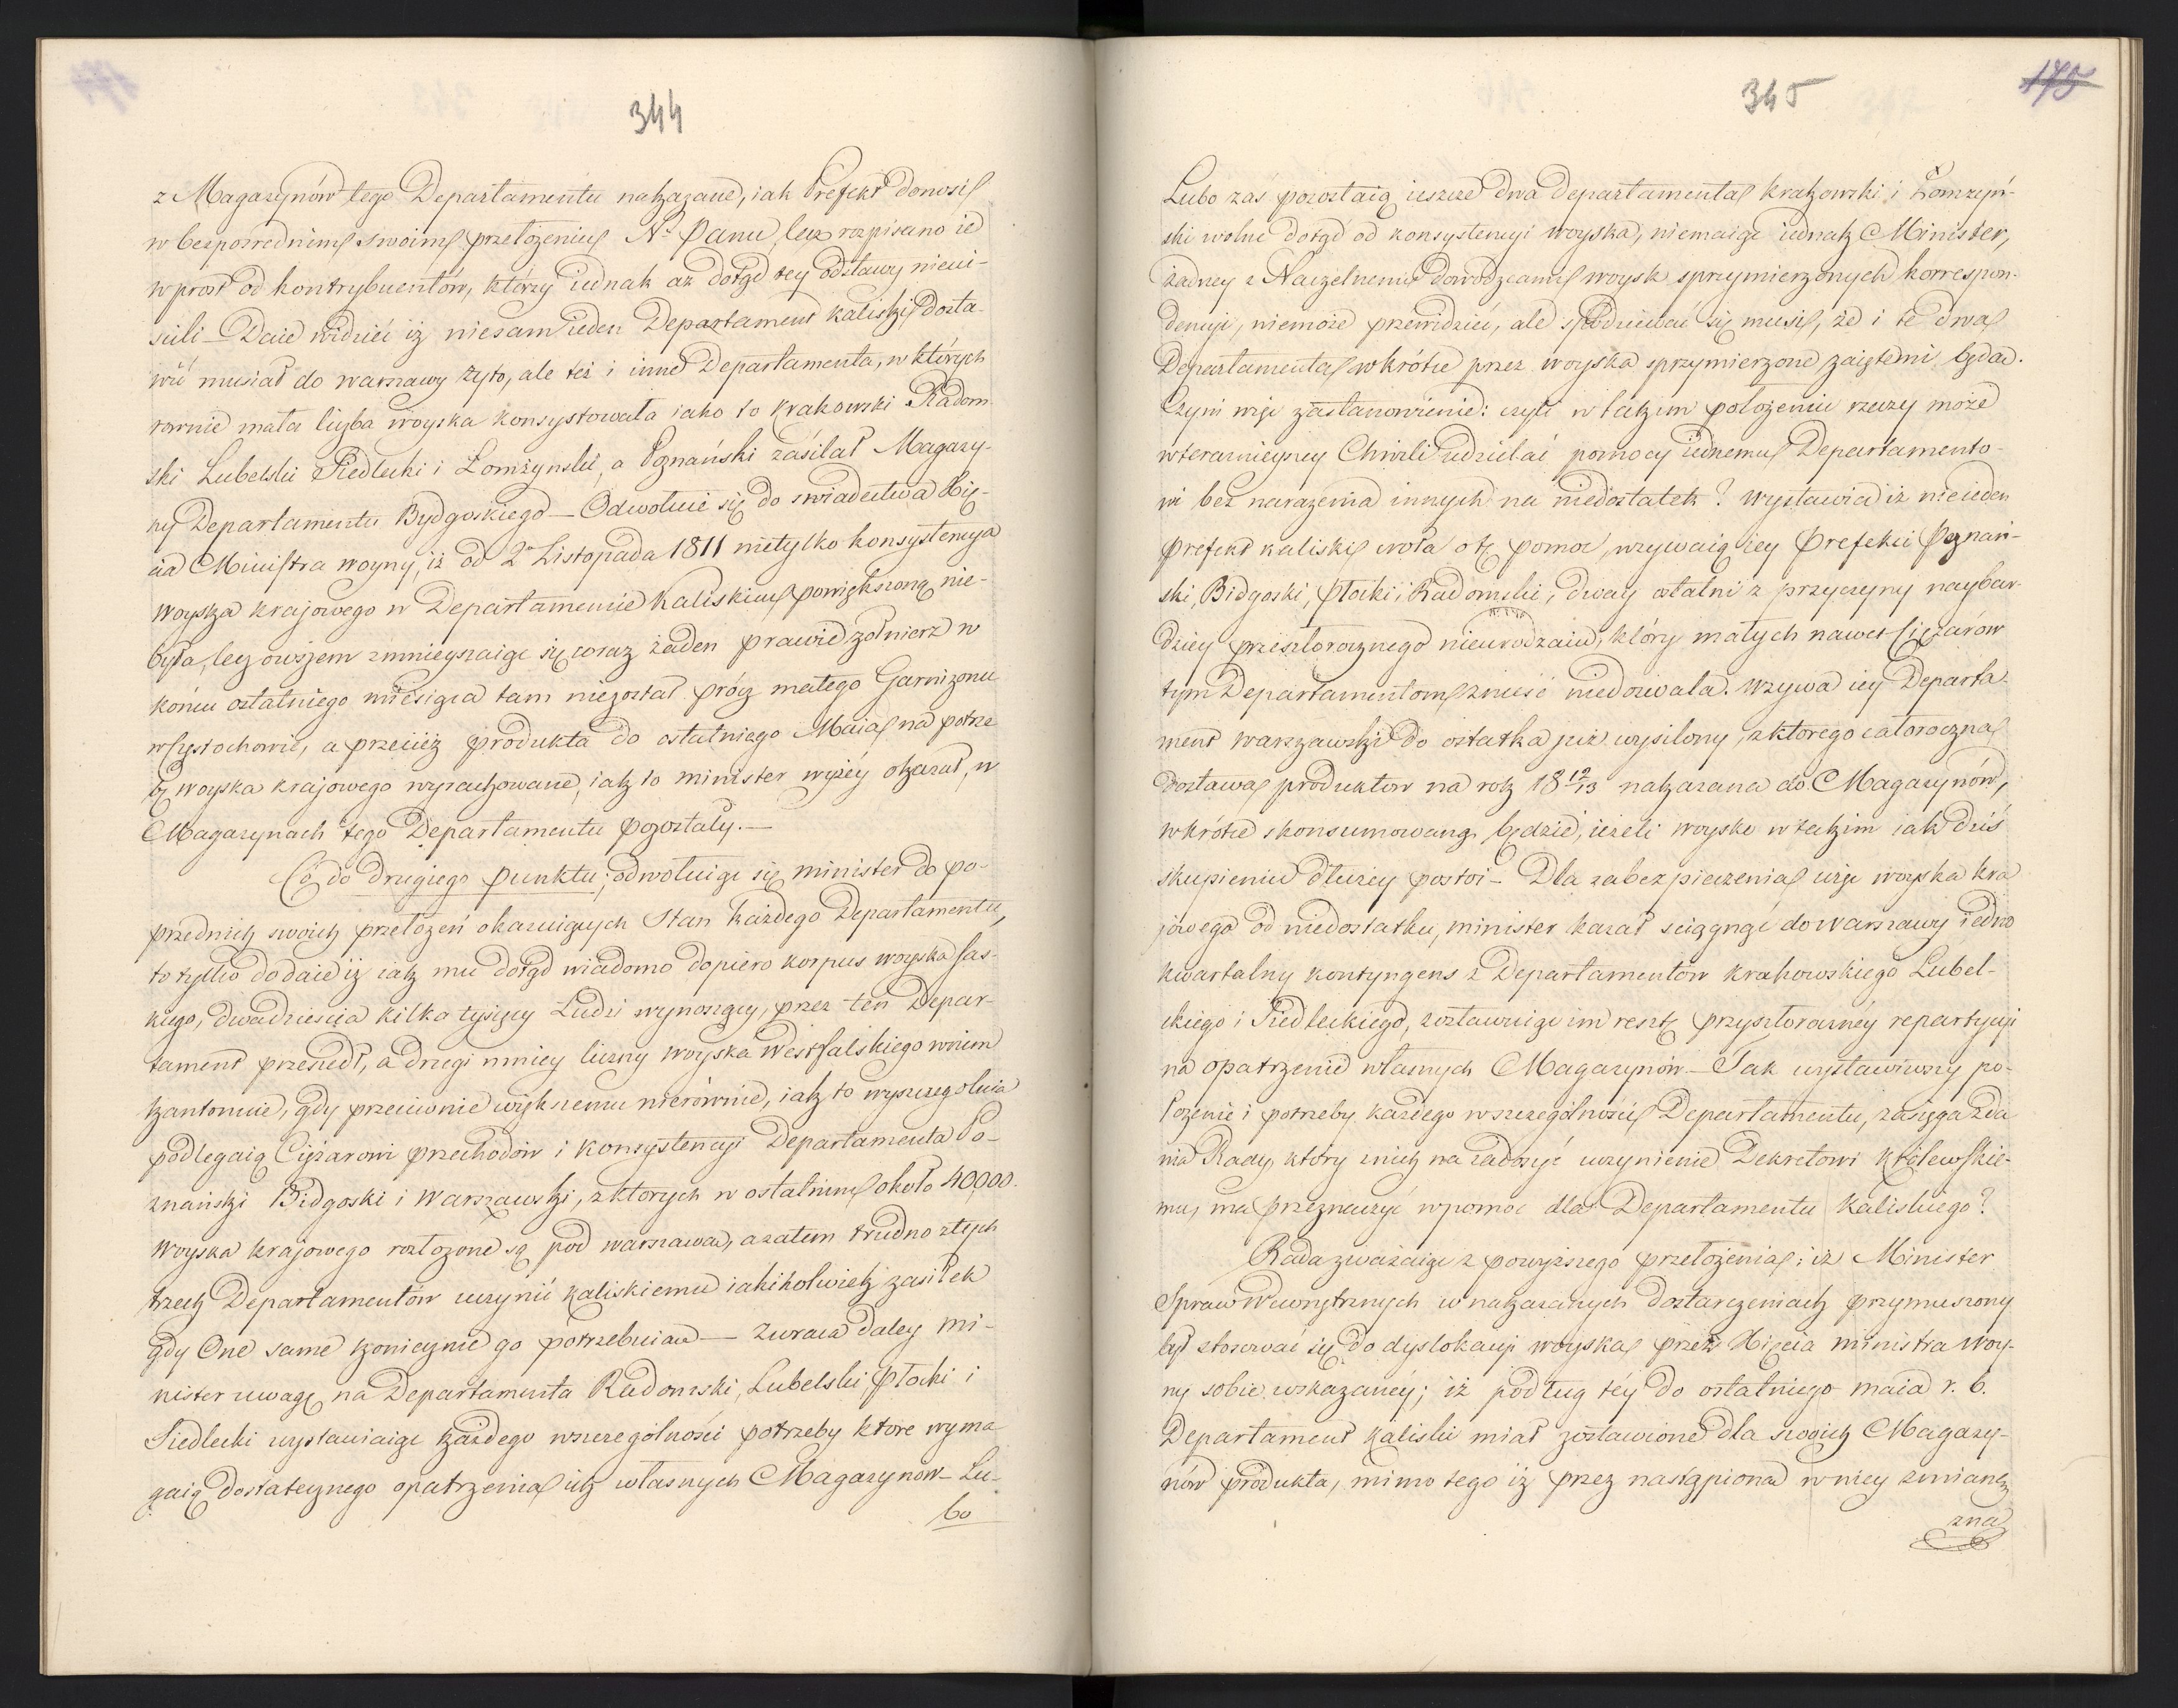 344
z Magazynów tego Departamentu nakazane, iak Prefekt donosi
w bezpośrednim swoim przełożeniu N. Panu, lecz rozpisano ie
wprost od kontrybuentów, którzy iednak aż dotąd tey odstawy nieui-
ścili – Daie widzieć iż niesam ieden Departament kaliski dosta-
wić musiał do warszawy żyto, ale też i inne Departamenta, w których
równie mała liczba woyska konsystowała iako to krakowski Radom-
ski Lubelski Siedlecki i Łomżynski, a Poznański zasilał Magazy-
ny Departamentu Bydgoskiego – Odwołuie się do swiadectwa Xię-
cia Ministra woyny, iż od 2º Listopada 1811 nietylko konsystencya
woyska krajowego w Departamencie Kaliskim powiększoną nie-
była, lecz owszem zmnieyszaiąc się coraz żaden prawie żołnierz w
końcu ostatniego miesiąca tam niezostał prócz małego Garnizonu
w Częstochowie, a przecież produkta do ostatniego Maia na potrze
bę woyska krajowego wyrachowane, iak to minister wyżéy okazał, w
Magazynach tego Departamentu pozostały. —
Co do drugiego punktu; odwołuiąc się minister do po-
przednich swoich przełożeń okazuiących Stan każdego Departamentu,
to tylko dodaie iż iak mu dotąd wiadomo dopiero korpus woyska sas-
kiego, dwadzieścia kilka tysięcy Ludzi wynoszący, przez ten Depar-
tament przeszedł, a drugi mniey liczny woyska Westfalskiego w nim
kantonuie, gdy przeciwnie większemu nierównie, iak to wyszczególnia
podlegaią Ciężarowi przechodów i konsystencyi Departamenta Po-
znański Bidgoski i Warszawski, z których w ostatnim około 40,000
woyska krajowego rozłożone są pod warszawą, a zatem trudno z tych
trzech Departamentów uczynić kaliskiemu iakikolwiek zasiłek
gdy One same koniecznie go potrzebuią — Zwraca daley mi-
nister uwagę na Departamenta Radomski, Lubelski, Płocki i
Siedlecki wystawiaiąc każdego w szczególności potrzeby które wyma
gaią dostatecznego opatrzenia ich własnych Magazynów – Lu-
bo
345
175
Lubo zaś pozostaią ieszcze dwa departamenta krakowski i Łomżyń-
ski wolne dotąd od konsystencyi woyska, niemaiąc iednak Minister,
żadney z Naczelnemi dowodzcami woysk sprzymierzonych korrespon-
dencyi, niemoże przewidzieć, ale spodziewać się musi, że i te dwa
Departamenta wkrótce przez woyska sprzymierzone zaiętemi będą.
Czyni więc zastanowienie: czyli w takim położeniu rzeczy może
w teraźnieyszey Chwili udzielać pomocy iednemu Departamento-
wi bez narażenia innych na niedostatek? Wystawia iż nieieden
prefekt kaliski woła o tę pomoc, wzywaią iey Prefekci Poznań-
ski, Bidgoski, Płocki i Radomski, dway ostatni z przyczyny naybar-
dziey przeszłorocznego nieurodzaiu, który małych nawet Ciężarów
tym Departamentom znieść niedozwala. Wzywa iey Departa-
ment warszawski do ostatka już wysilony, z którego całoroczna
dostawa produktów na rok 18 12/13 nakazana do Magazynów,
wkrótce skonsumowaną będzie, ieżeli woysko w takim iak dziś
skupieniu dłużey postoi – Dla zabezpieczenia więc woyska kra
jowego od niedostatku, minister kazał sciągnąć do warszawy iedno
kwartalny kontyngens z Departamentów krakowskiego Lubel-
skiego i Siedleckiego, zostawuiąc im resztę przyszłorocznéy repartycyi
na opatrzenie własnych Magazynów – Tak wystawiwszy po-
łożenie i potrzeby każdego w szczególności Departamentu, zasięga zda
nia Rady, który z nich na zadosyć uczynienie Dekretowi królewskie-
mu, ma przeznaczyć w pomoc dla Departamentu Kaliskiego?
Rada zważaiąc z powyższego przełożenia: iż Minister
Spraw Wewnętrznych w nakazanych dostarczeniach przymuszony
był stosować się do dyslokacyi woyska przez Xięcia ministra woy-
ny sobie wskazanéy; iż podług téy do ostatniego maia r. b.
Departament kaliski miał zostawione dla swoich Magazy-
nów produkta, mimo tego iż przez nastąpioną w niey zmianę
zna